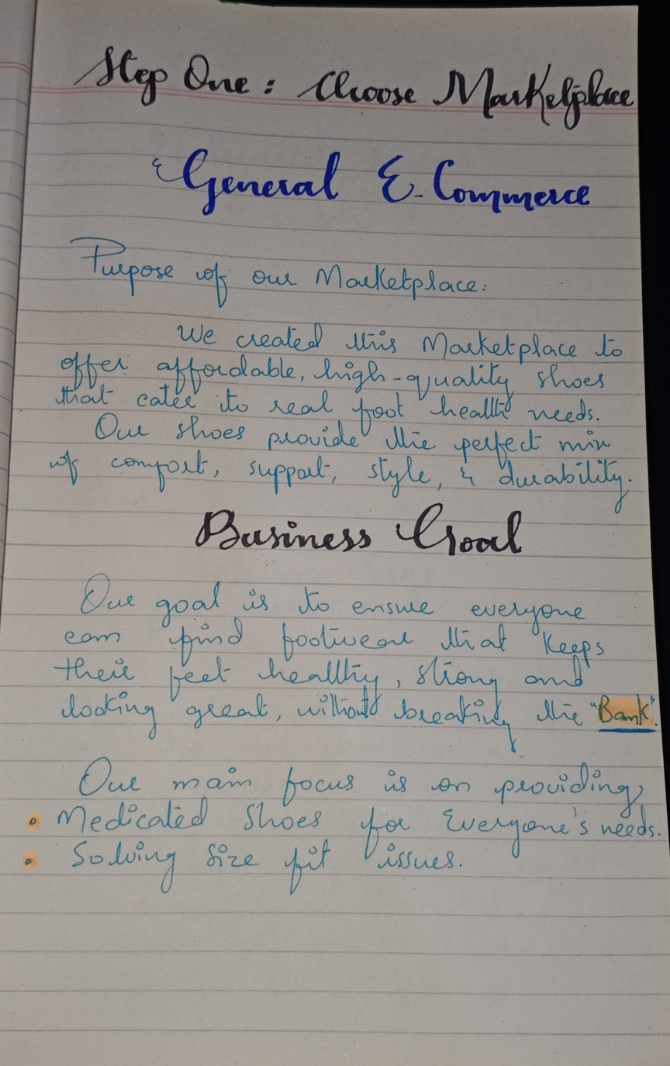 Step One : Choose Marketplace
General E-Commerce
Purpose of our Marketplace:
We created this Marketplace to
offer affordable, high-quality shoes
that cater to real foot health needs.
Our shoes provide the perfect mix
of comfort, support, style, & durability.
Business Goal
Our goal is to ensure everyone
can find footwear that keeps
their feet healthy, strong and
looking great, without breaking the "Bank".
Our main focus is on providing,
• Medicated Shoes for Everyone's needs.
• Solving size fit issues.